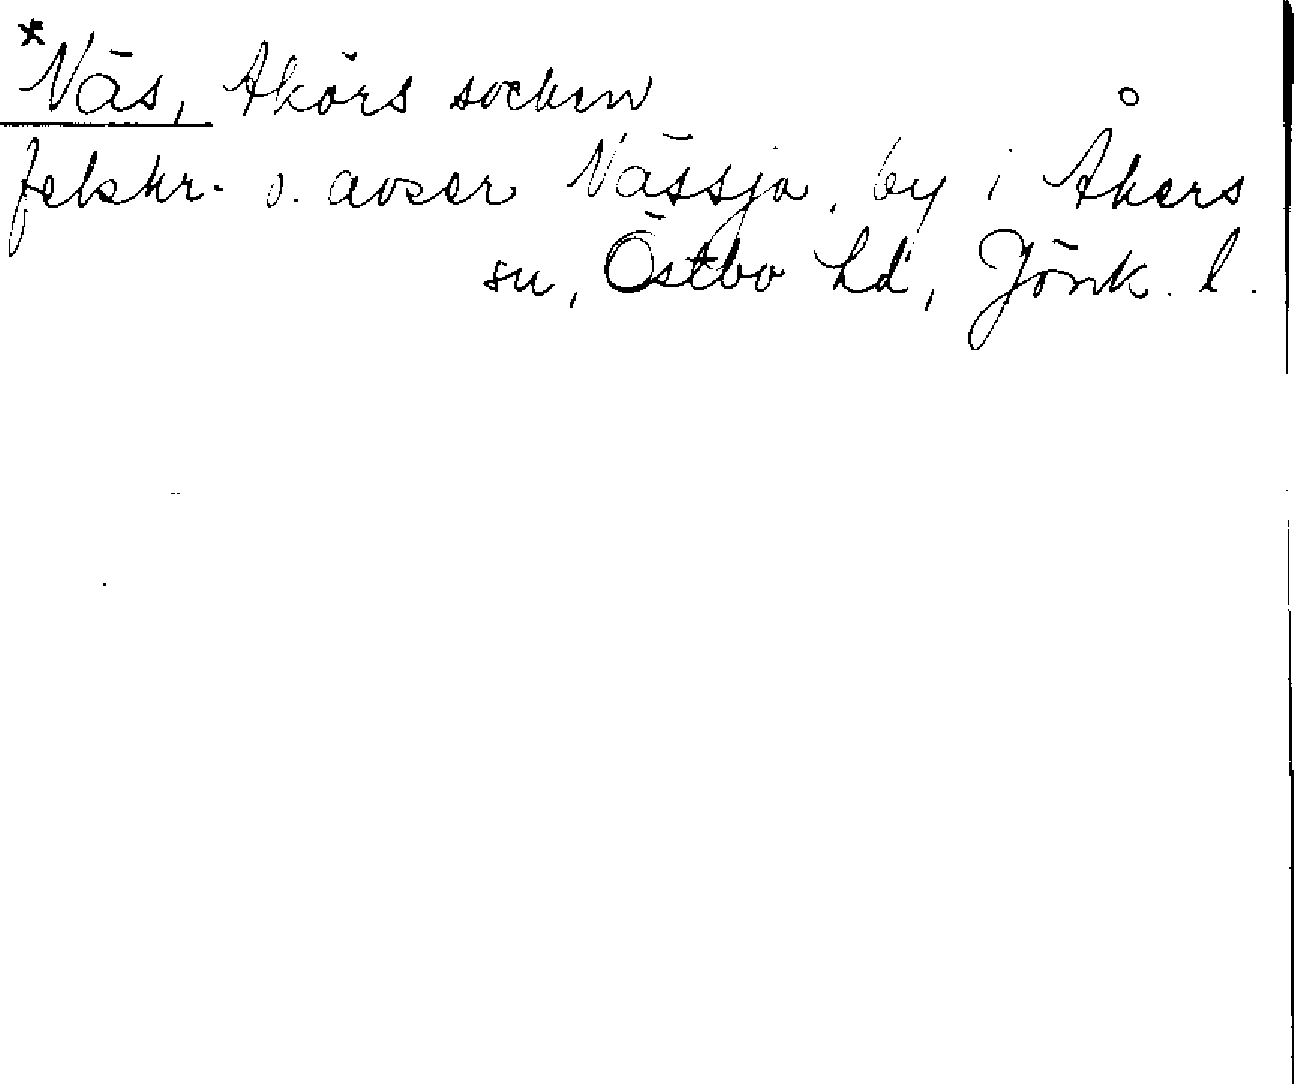 *Näs, Akörs socken
felskr. o. avser Nässja, by i Åkers
sn, Östbo hd, Jönk. l.